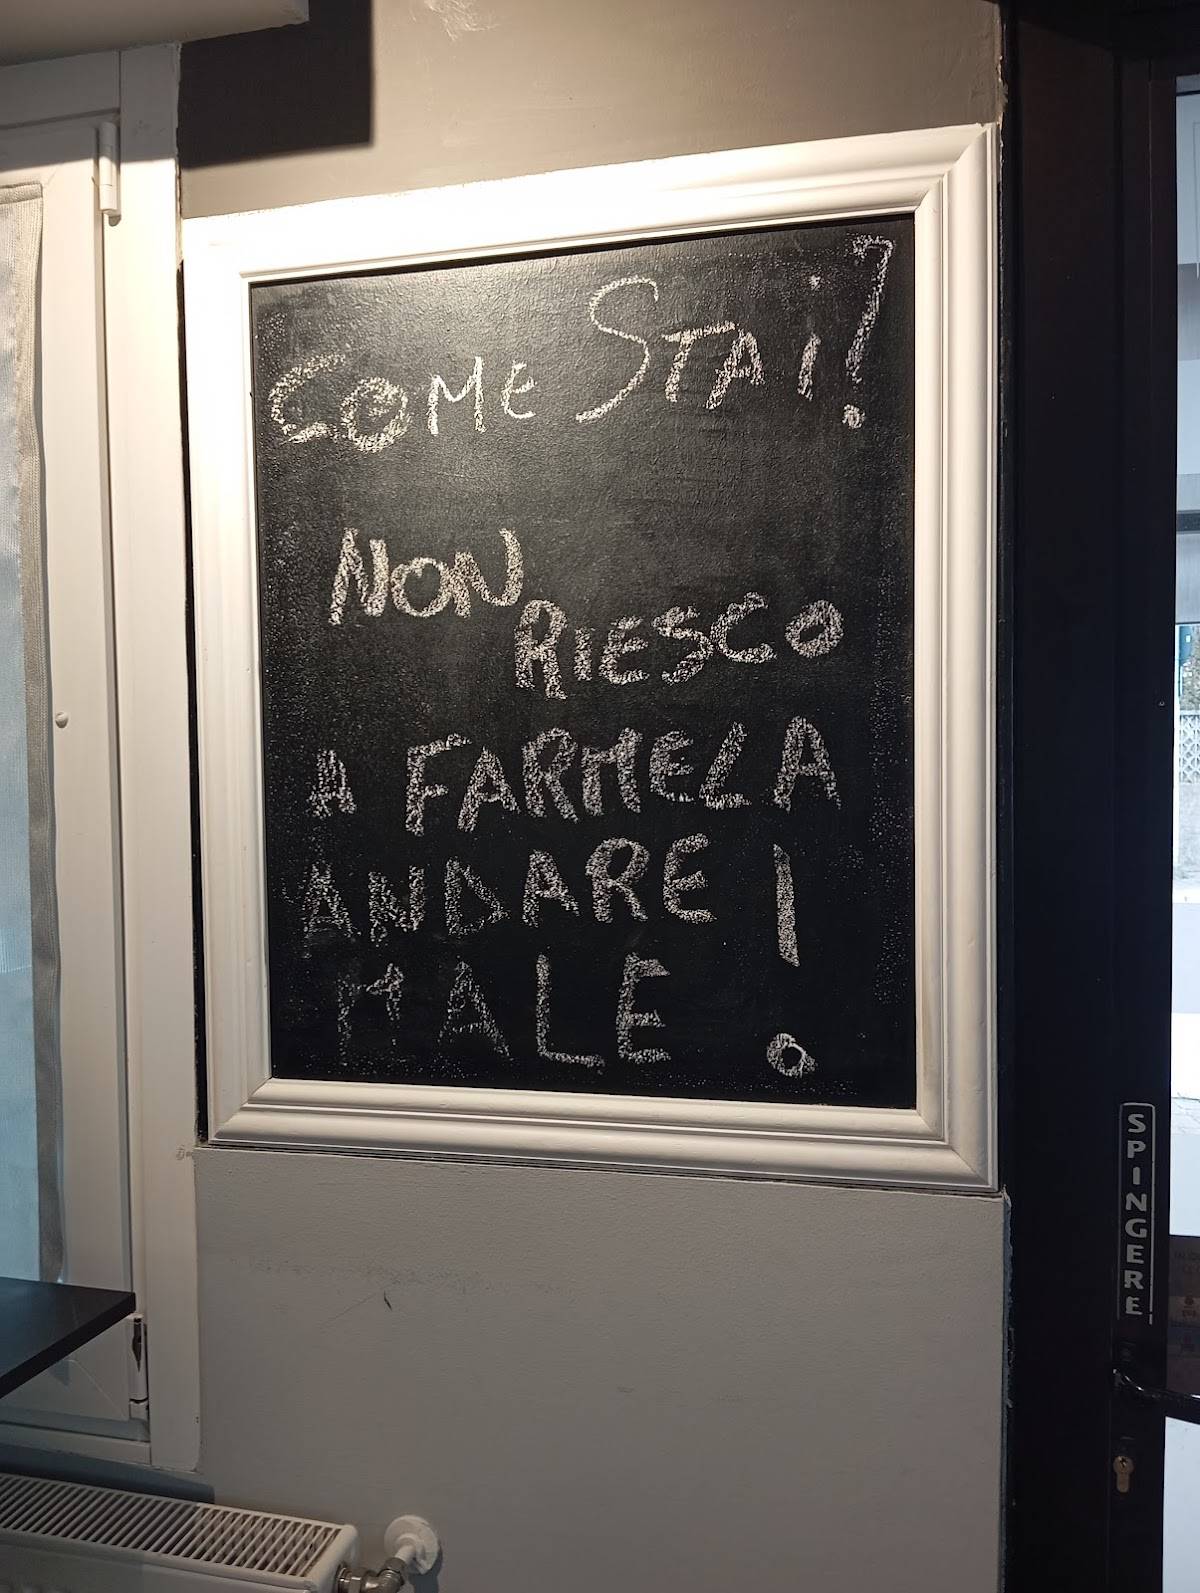 COMe STAi?
NON
RIESCO
A FARMELA
ANDARE !
MALE
SPINGERE